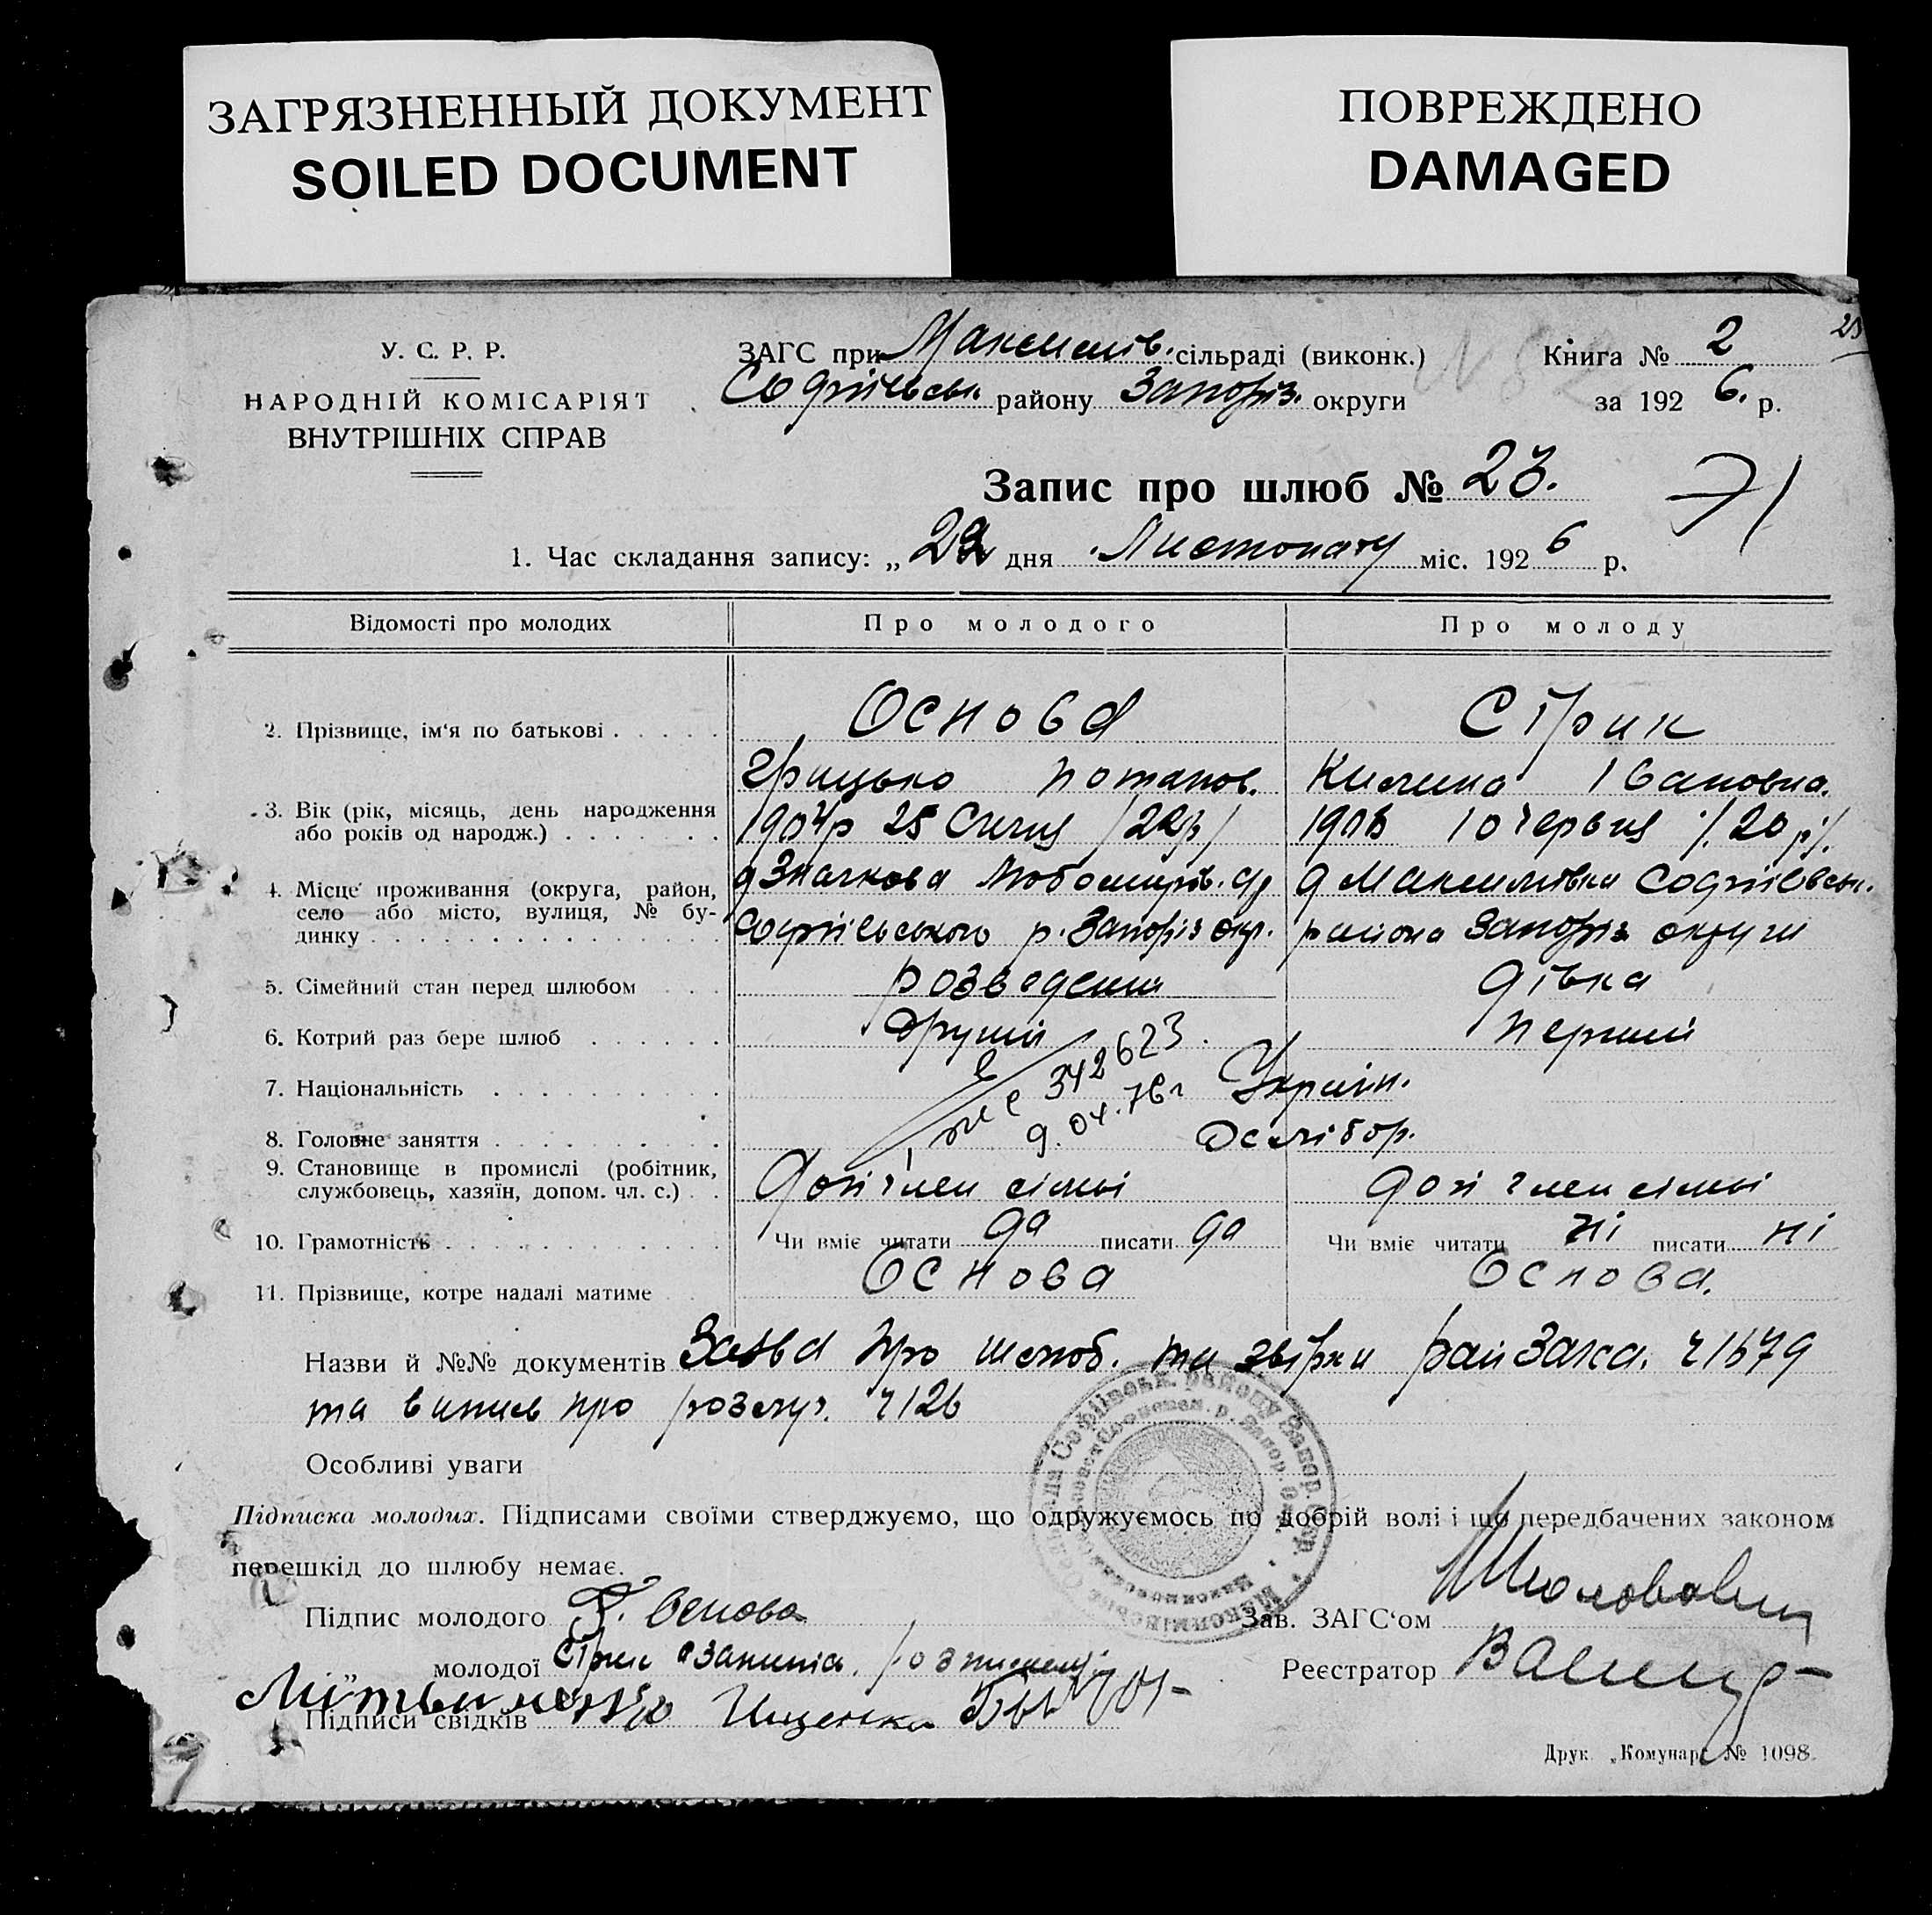 ЗАГРЯЗНЕННЫЙ ДОКУМЕНТ
SOILED DOCUMENT
ПОВРЕЖДЕНО
DAMAGED
У. С. Р. Р.
НАРОДНІЙ КОМІСАРІЯТ
ВНУТРІШНІХ СПРАВ
ЗАГС при Максимів. сільраді (виконк.)
Софіївськ. району Запоріз. округи
Книга № 2
за 1926. р.
Запис про шлюб № 23.
1. Час складання запису: „22 дня Листопаду міс. 1926 р.
Відомості про молодих Про молодого Про молоду
2. Прізвище, ім'я по батькові Основа Стрик
Грицько Потапов. Килина Івановна.
3. Вік (рік, місяць, день народження
або років од народж.) 1904р 25 Січня /22р/ 1906 10 Червня /20 р/.
4. Місце проживання (округа, район,
село або місто, вулиця, № бу-
динку
д Значкова Любомирів. с/р
Софіївського р. Запоріз окр.
д Максимівка Софіївськ.
района Запоріз округи
5. Сімейний стан перед шлюбом розведений дівка
6. Котрий раз бере шлюб другий перший
7. Національність Україн.
342623
9.04.76г
8. Головне заняття Хлібор.
9. Становище в промислі (робітник,
службовець, хазяїн, допом. чл. с.) доп член сімьі доп член сімьі
10. Грамотність Чи вміє читати да писати да Чи вміє читати ні писати ні
11. Прізвище, котре надалі матиме Основа Основа.
Назви й №№ документів Заява про шлюб. та звірки райЗагса. ч 1679
та випись про розлуч. ч 126
Особливі уваги
Підписка молодих. Підписами своїми стверджуємо, що одружуємось по добрій волі і що передбачених законом
перешкід до шлюбу немає.
Підпис молодого Г. Основа
Зав. ЗАГС'ом
„ молодої Стрик
Реєстратор
Підписи свідків Ищенко
Друк. „Комунар" № 1098.